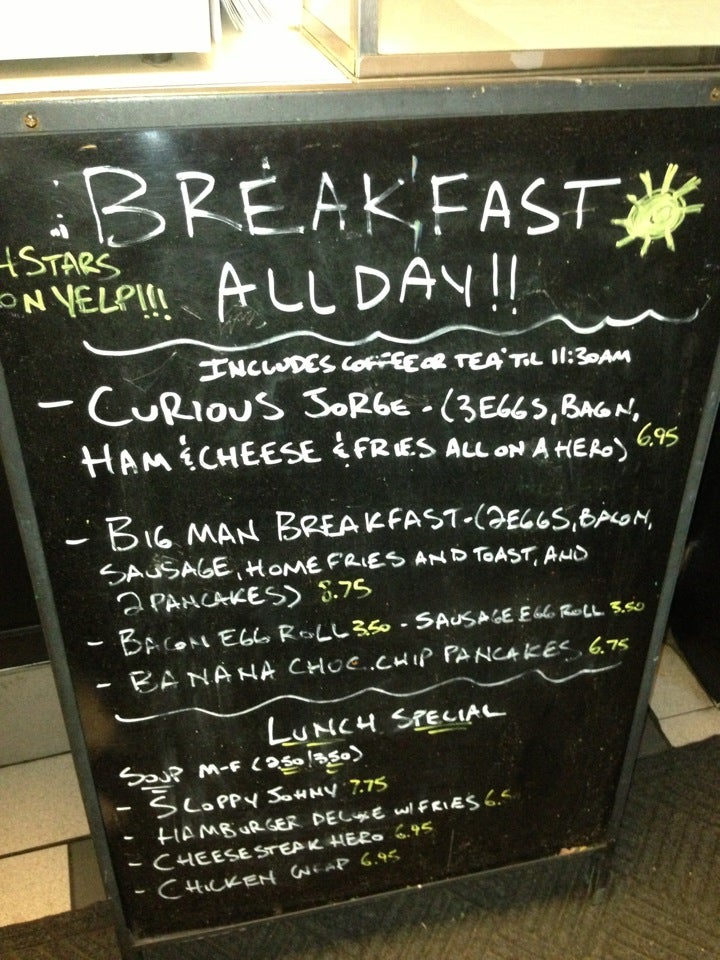 BREAKFAST
ALL DAY!!
4 STARS
ON YELP!!!
INCLUDES COFFEE OR TEA 'TIL 11:30AM
- CURIOUS JORGE - (3 EGGS, BACON,
HAM & CHEESE & FRIES ALL ON A HERO) 6.95
- BIG MAN BREAKFAST - (2 EGGS, BACON,
SAUSAGE, HOME FRIES AND TOAST, AND
2 PANCAKES) 8.75
- BACON EGG ROLL 3.50 - SAUSAGE EGG ROLL 3.50
- BANANA CHOC. CHIP PANCAKES 6.75
LUNCH SPECIAL
SOUP M-F (2.50/3.50)
- SLOPPY JOHNY 7.75
- HAMBURGER DELUXE W/ FRIES
- CHEESESTEAK HERO 6.95
- CHICKEN WRAP 6.95